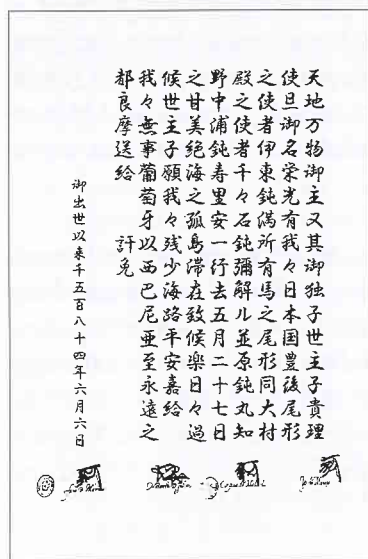 天地万物御主又其御独子世主子貴理
使旦御名栄光有我々日本国豊後尾形
之使者伊東鈍満所有馬之尾形同大村
殿之使者千々石鈍彌解ル並原鈍丸知
野中浦鈍寿里安一行去五月二十七日
之甘美絶海之孤島滞在致候楽日々過
候世主子願我々残少海路平安嘉給
我々無事葡萄牙以西巴尼亜至永遠之
都良摩送給 許免
御出世以来千五百八十四年六月六日